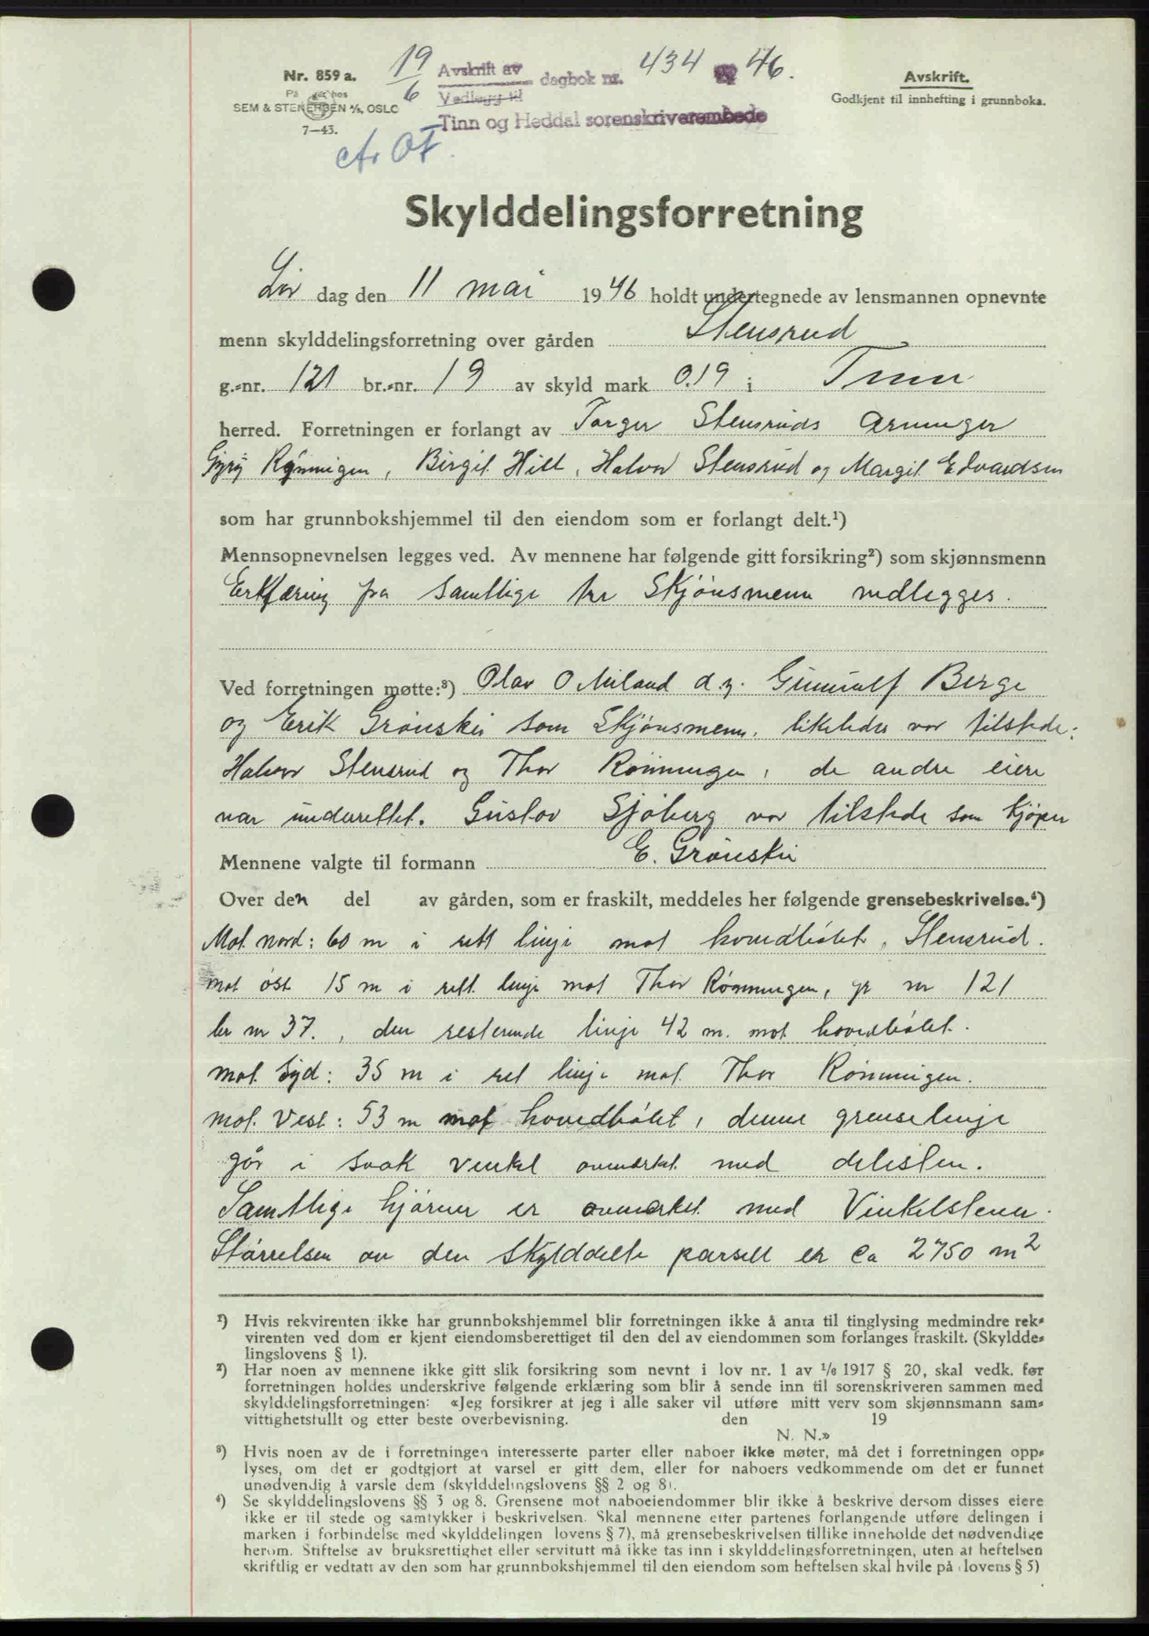 Nr. 859 a.
På lager hos
SEM & STENERSEN A/S, OSLO
7—43.
19/6
Avskrift av
Vedlegg til
dagbok nr. 434 19 46.
Tinn og Heddal sorenskriverembede
Avskrift.
Godkjent til innhefting i grunnboka.
Skylddelingsforretning
Lør dag den 11 mai 1946 holdt undertegnede av lensmannen opnevnte
menn skylddelingsforretning over gården Stensrud
g.-nr. 121 br.-nr. 19 av skyld mark 0.19 i Tinn
herred. Forretningen er forlangt av Torger Stensruds Arvinger
Gyrij Rønningen, Birgit Hill, Halvor Stensrud og Margit Edvardsen
som har grunnbokshjemmel til den eiendom som er forlangt delt.¹)
Mennsopnevnelsen legges ved. Av mennene har følgende gitt forsikring²) som skjønnsmenn
Erklæring fra samtlige tre Skjønsmenn vedlegges.
Ved forretningen møtte:³) Olav O Miland d.y. Gunnulf Berge
og Erik Grønskei som Skjønsmenn, likeledes var tilstede:
Halvor Stensrud og Thor Rønningen, de andre eiere
var underettet. Gustav Sjøberg var tilstede som kjøper
Mennene valgte til formann E. Grønskei
Over den del av gården, som er fraskilt, meddeles her følgende grensebeskrivelse.⁴)
Mot nord: 60 m i rett linje mot hovedbølet, Stensrud.
mot øst 15 m i rett linje mot Thor Rønningen, gr nr 121
br nr 37., den resterende linje 42 m. mot hovedbølet.
mot Syd: 35 m i ret linje mot Thor Rønningen.
mot Vest: 53 m mot hovedbølet, denne grenselinje
går i svak vinkel avmerket med delesten.
Samtlige hjørner er avmerket med Vinkelstener.
Størrelsen av den skylddelte parsell er ca 2750 m²
¹) Hvis rekvirenten ikke har grunnbokshjemmel blir forretningen ikke å anta til tinglysing medmindre rek-
virenten ved dom er kjent eiendomsberettiget til den del av eiendommen som forlanges fraskilt. (Skyldde-
lingslovens § 1).
²) Har noen av mennene ikke gitt slik forsikring som nevnt i lov nr. 1 av 1/6 1917 § 20, skal vedk. før
forretningen holdes underskrive følgende erklæring som blir å sende inn til sorenskriveren sammen med
skylddelingsforretningen: «Jeg forsikrer at jeg i alle saker vil utføre mitt verv som skjønnsmann sam-
vittighetsfullt og etter beste overbevisning. den 19
N. N.»
³) Hvis noen av de i forretningen interesserte parter eller naboer ikke møter, må det i forretningen opp-
lyses, om det er godtgjort at varsel er gitt dem, eller for naboers vedkommende om det er funnet
unødvendig å varsle dem (skylddelingslovens §§ 2 og 8).
⁴) Se skylddelingslovens §§ 3 og 8. Grensene mot naboeiendommer blir ikke å beskrive dersom disses eiere
ikke er til stede og samtykker i beskrivelsen. Skal mennene etter partenes forlangende utføre delingen i
marken i forbindelse med skylddelingen (lovens § 7), må grensebeskrivelsen tillike inneholde det nødvendige
herom. Stiftelse av bruksrettighet eller servitutt må ikke tas inn i skylddelingsforretningen, uten at heftelsen
skriftlig er vedtatt av den som har grunnbokshjemmel til den eiendom som heftelsen skal hvile på (lovens § 5)